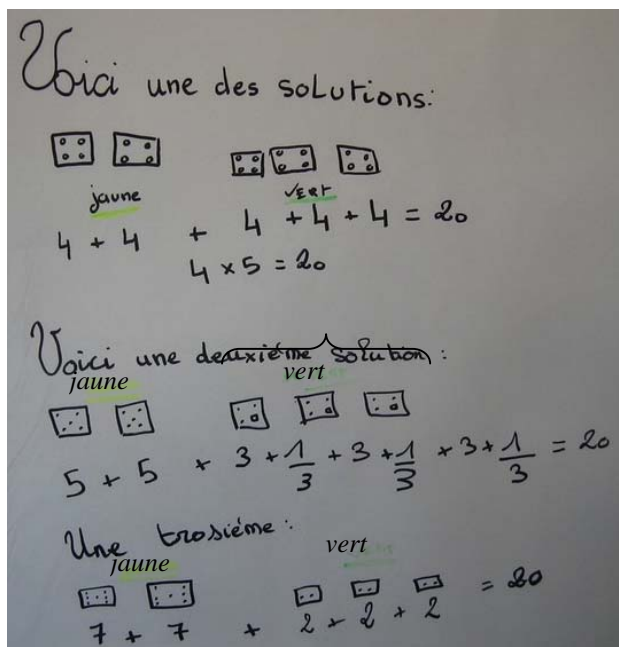 Voici une des solutions:
jaune vert
4 + 4 + 4 + 4 + 4 = 20
4 × 5 = 20
Voici une deuxiéme solution :
jaune vert
5 + 5 + 3 + 1/3 + 3 + 1/3 + 3 + 1/3 = 20
Une trosiéme :
jaune vert
7 + 7 + 2 + 2 + 2 = 20